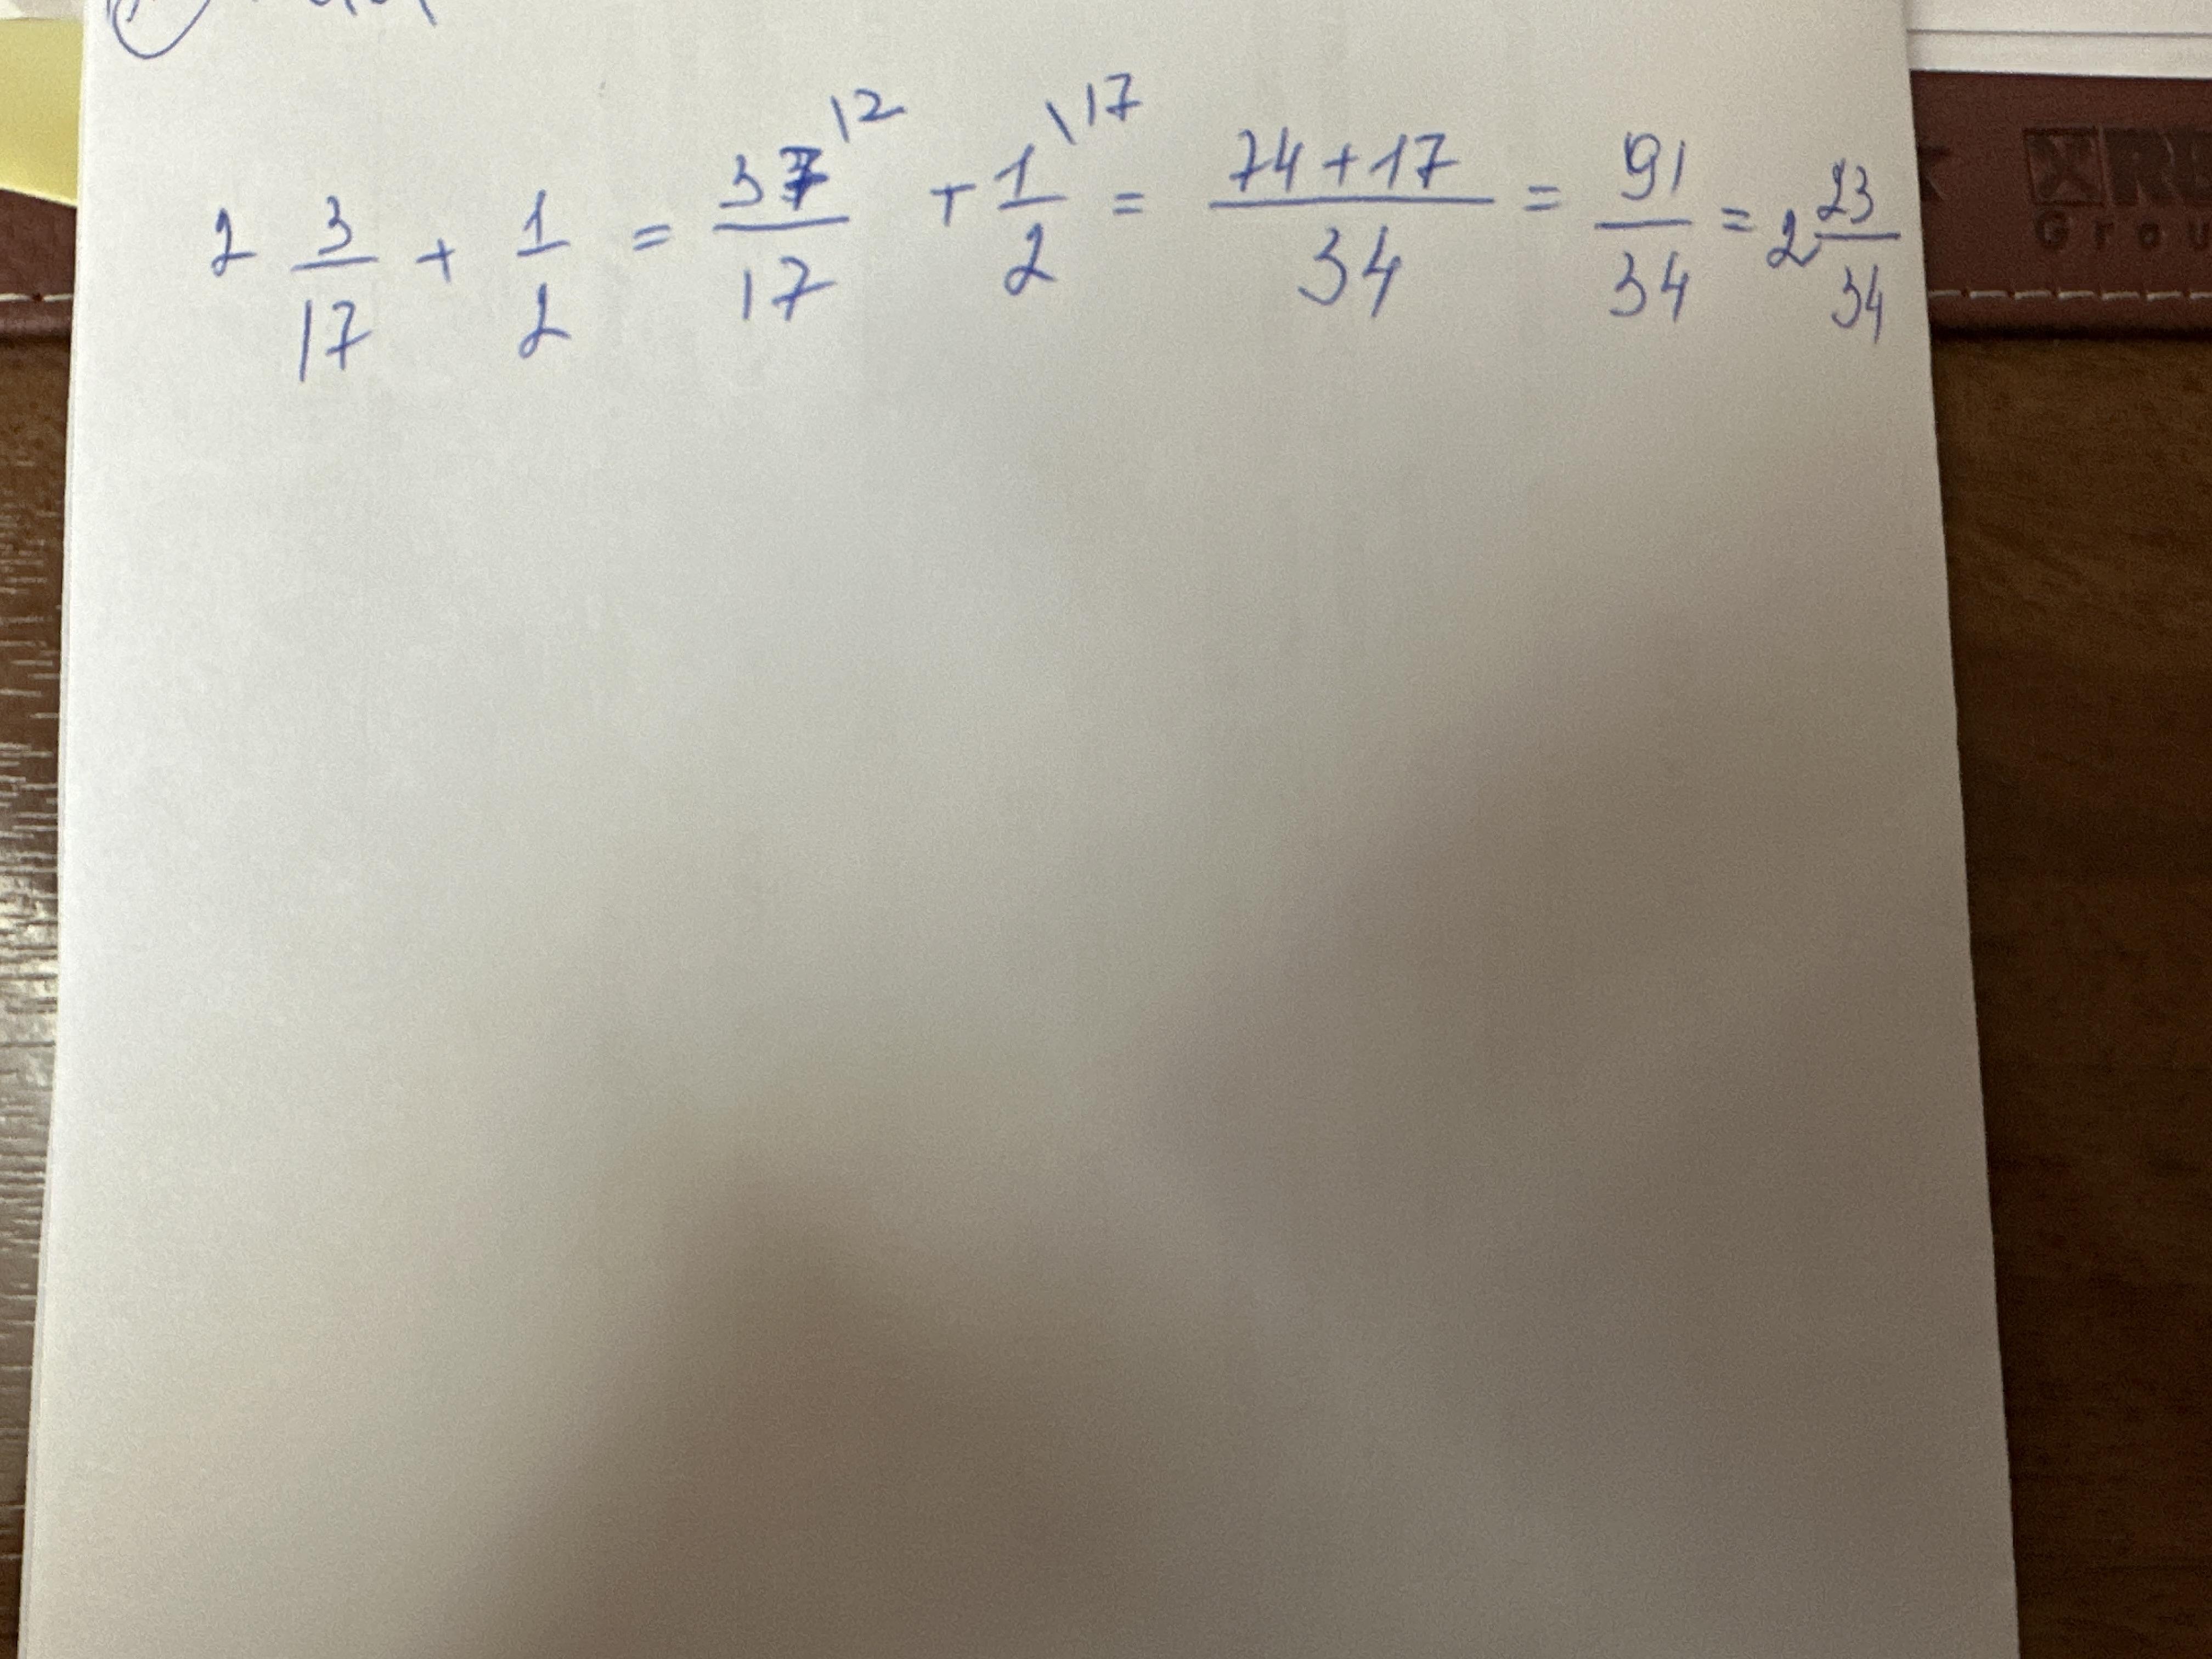 2 3/17 + 1/2 = 37\2/17 + 1\17/2 = 74+17/34 = 91/34 = 2 23/34
Grou